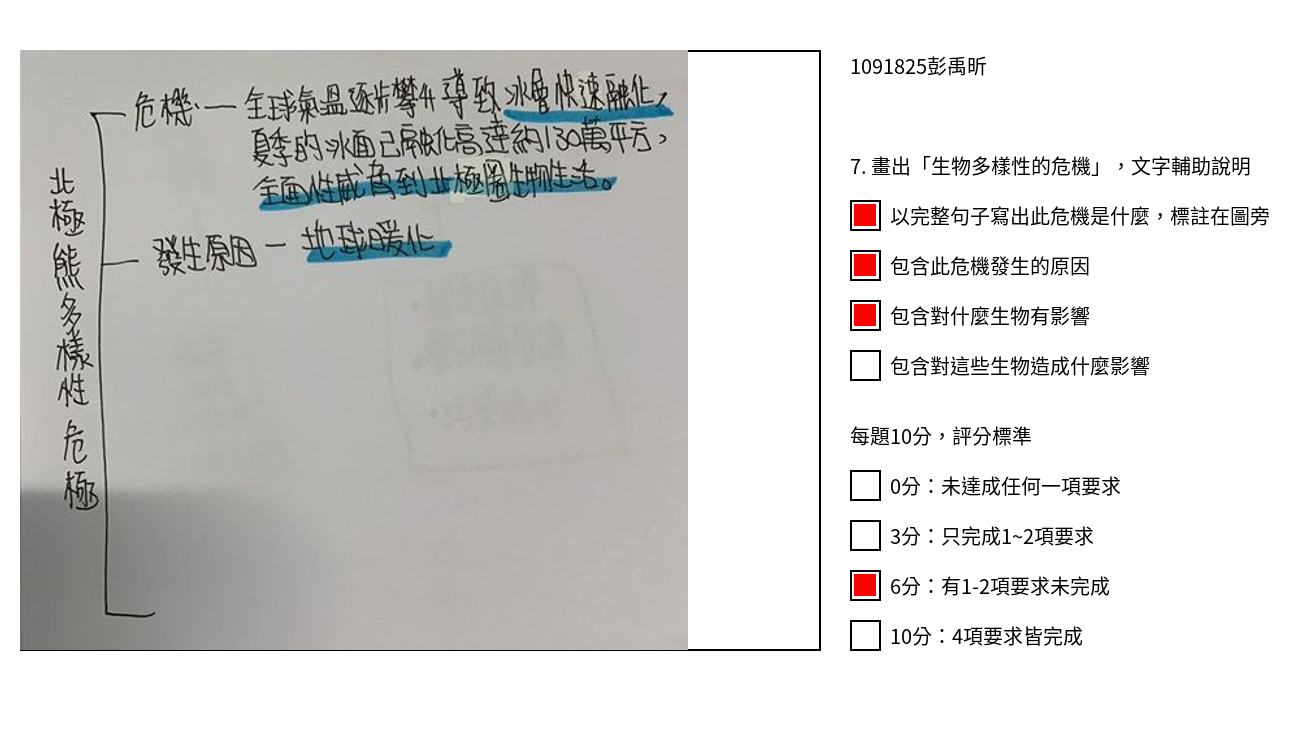 北極熊多樣性危極
危機 — 全球氣溫逐步攀升導致冰層快速融化,
夏季的冰面已融化高達約130萬平方,
全面性威脅到北極圈生物生活。
發生原因 — 地球暖化
1091825彭禹昕
7. 畫出「生物多樣性的危機」，文字輔助說明
以完整句子寫出此危機是什麼，標註在圖旁
包含此危機發生的原因
包含對什麼生物有影響
包含對這些生物造成什麼影響
每題10分，評分標準
0分：未達成任何一項要求
3分：只完成1~2項要求
6分：有1-2項要求未完成
10分：4項要求皆完成